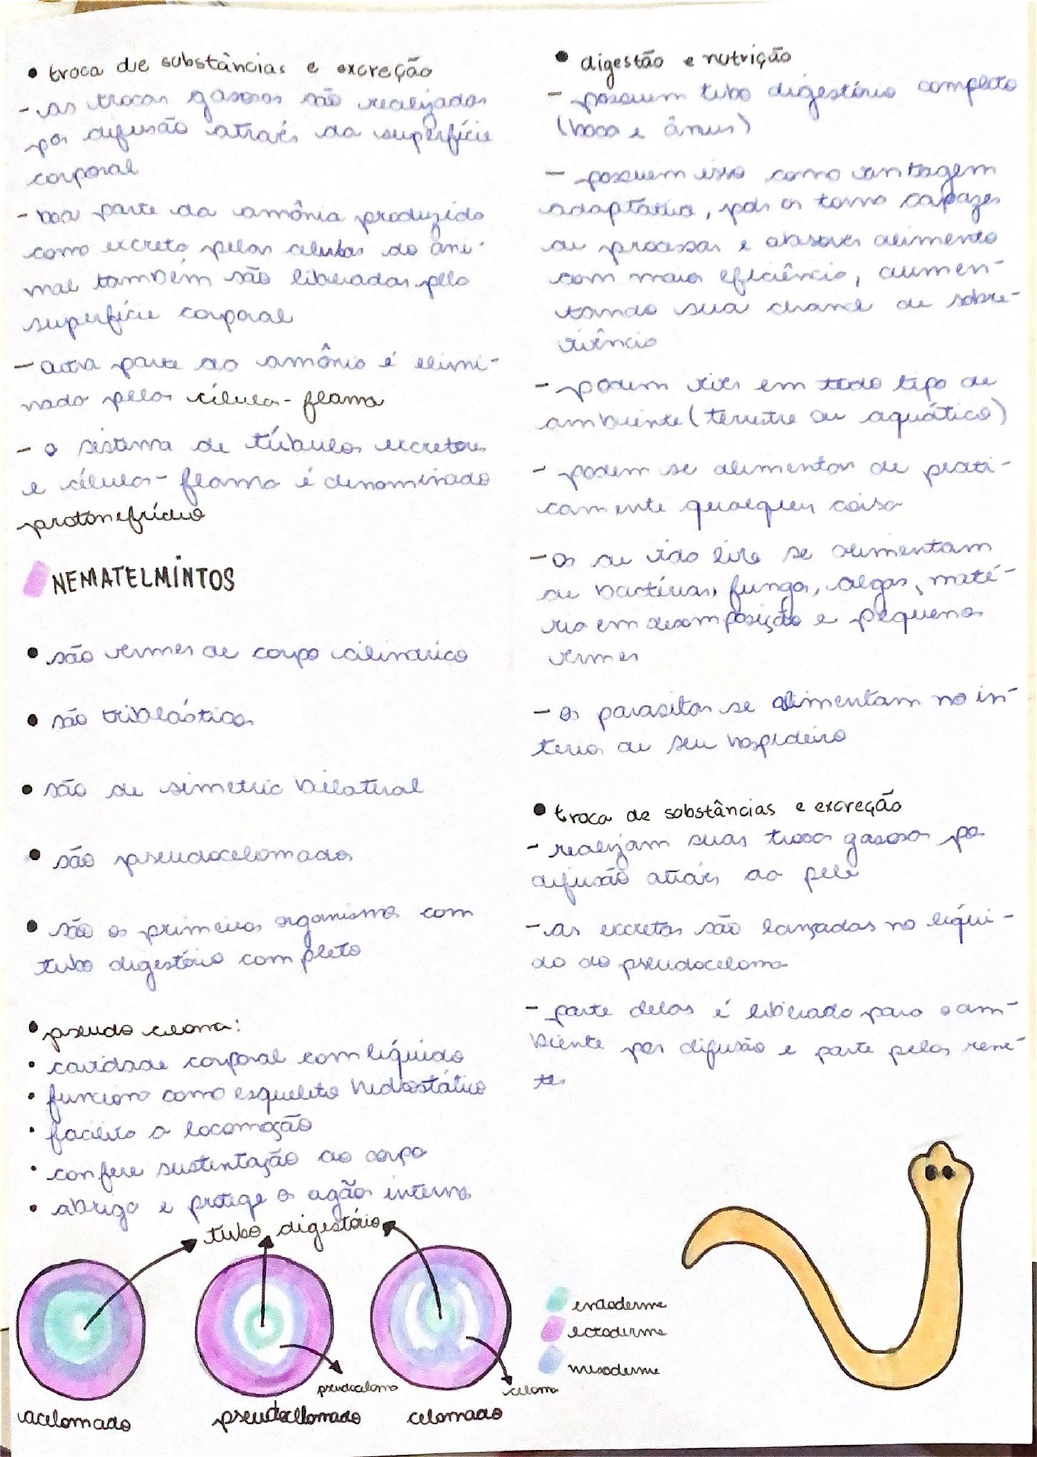 • troca de substâncias e excreção
- as trocas gasosas são realizadas
por difusão através da superfície
corporal
- boa parte da amônia produzida
como excreto pelas células do ani-
mal também são liberadas pela
superfície corporal
- outra parte da amônia é elimi-
nada pelas células-flama
- o sistema de túbulos excretores
e células-flama é denominado
protonefrídeo
NEMATELMINTOS
• são vermes de corpo cilíndrico
• são triblásticos
• são de simetria bilateral
• são pseudocelomados
• são os primeiros organismos com
tubo digestório completo
• pseudo celoma:
• cavidade corporal com líquido
• funciona como esqueleto hidrostático
• facilita a locomoção
• confere sustentação ao corpo
• abriga e protege os orgãos internos
tubo digestório
pseudoceloma
celoma
acelomado
pseudocelomado
celomado
• digestão e nutrição
- possuem tubo digestório completo
(boca e ânus)
- possuem isso como vantagem
adaptativa, pois os torna capazes
de processar e absover alimento
com maior eficiência, aumen-
tando sua chance de sobre-
vivência
- podem viver em todo tipo de
ambiente (terrestre ou aquático)
- podem se alimentar de prati-
camente qualquer coisa
- os de vida livre se alimentam
de bactérias, fungos, algas, maté-
ria em decomposição e pequenos
vermes
- os parasitas se alimentam no in-
terior de seu hospedeiro
• troca de substâncias e excreção
- realizam suas trocas gasosas por
difusão através da pele
- as excretas são lançadas no líqui-
do do pseudoceloma
- parte delas é liberada para o am-
biente por difusão e parte pelos renê-
endoderme
ectoderme
mesoderme